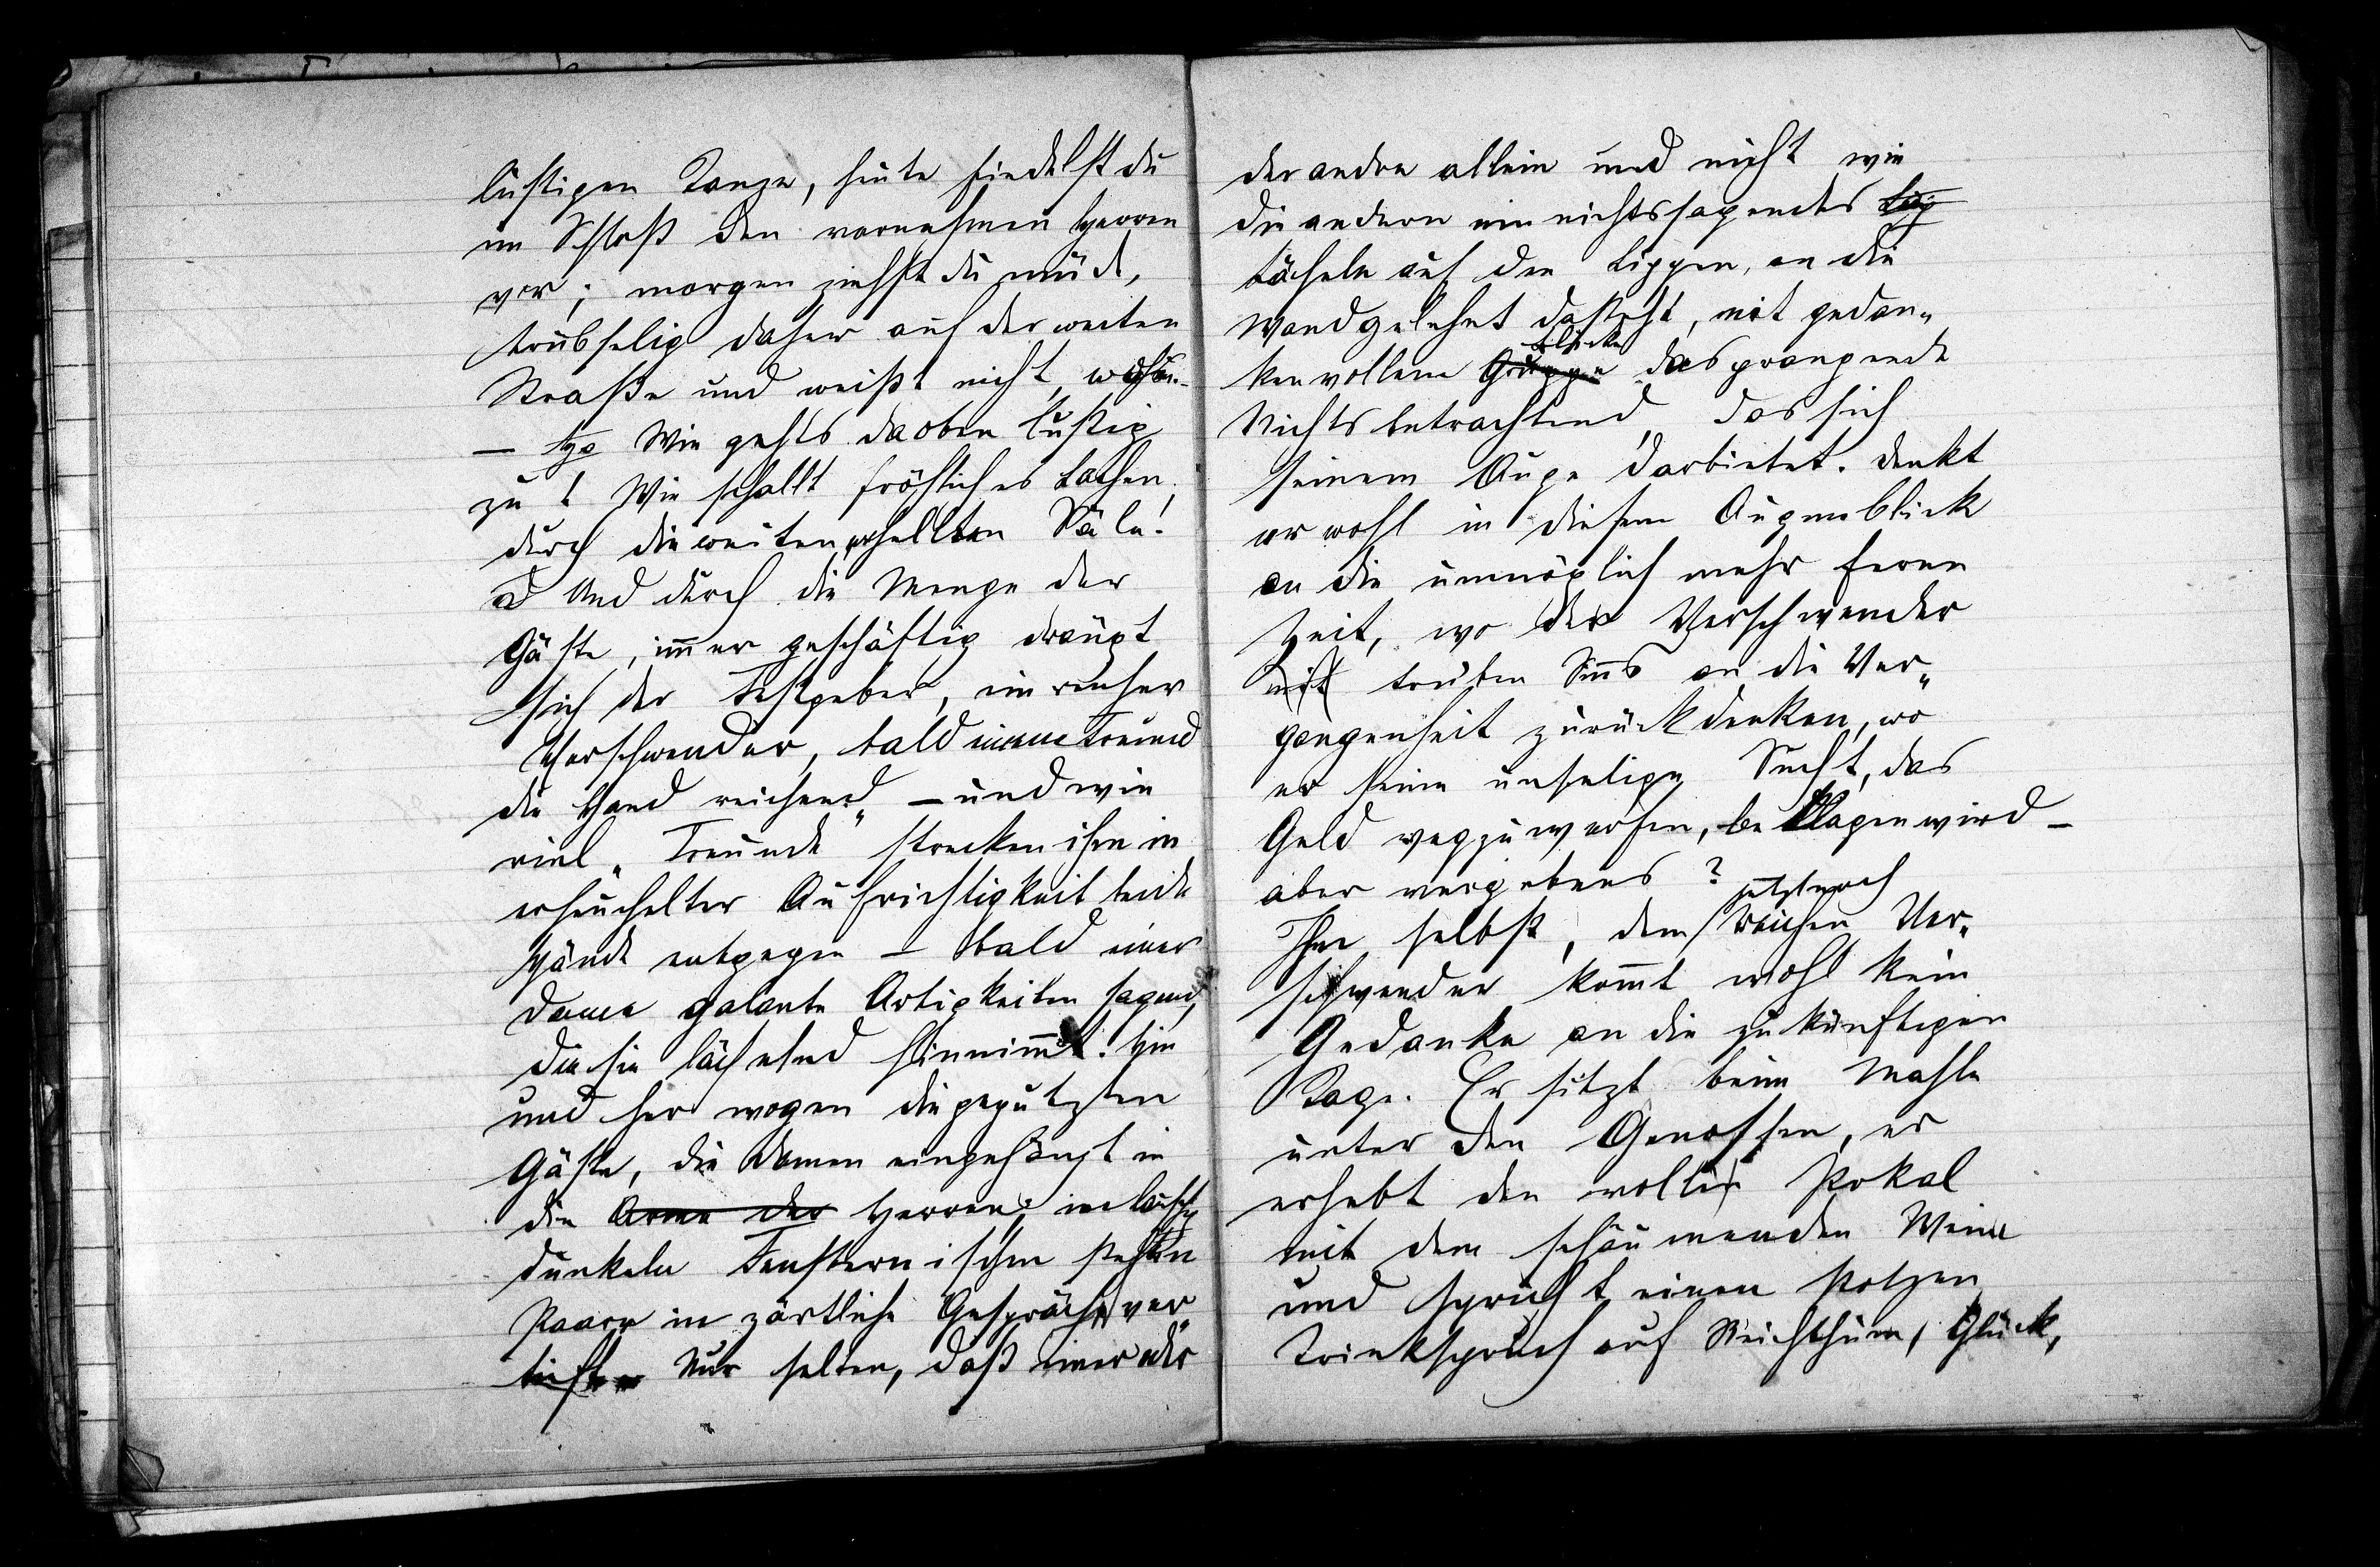 lustigen Tanze, heute fiedelst du
im Schloß den vornehmen Herren
vor; morgen ziehst du müde,
trübselig daher auf der weiten
Straße und weißt nicht, wohin.
– Wie gehts da oben lustig
zu! Wie schallt fröhliches Lachen
durch die weiten erhellten Säle!
Und durch die Menge der
Gäste, immer geschäftig drängt
sich der Festgeber, ein reicher
Verschwender, bald einem Freund
die Hand reichend, – und wie
viel „Freunde“ strecken ihm in
erheuchelter Aufrichtigkeit beide
Hände entgegen – bald einer
Dame galante Artigkeiten sagend,
die sie lächelnd hinnimmt. Hin
und her wogen die geputzten
Gäste, die Damen eingehängt in
die Arme der Herren; in lauschig
dunkeln Fensternischen stehen
Paare in zärtliche Gespräche ver„
tieft. Nur selten, daß einer oder
der andre allein und nicht wie
die andern ein nichtssagendes
Lächeln auf den Lippen, an die
Wand gelehnt dasteht, mit gedan„
kenvollem Blicke das prangende
Nichts betrachtend, das sich
seinem Auge darbietet. Denkt
er wohl in diesem Augenblick
an die unmöglich mehr ferne
Zeit, wo der Verschwender
mit trüben Sinns an die Ver„
gangenheit zurückdenken, wo
er seine unselige Sucht, das
Geld wegzuwerfen, beklagen wird –
aber vergebens?
Ihm selbst, dem jetzt noch reichen Ver„
schwender kommt wohl kein
Gedanke an die zukünftigen
Tage. Er sitzt beim Mahle
unter den Genossen, er
erhebt den vollen Pokal
mit dem schäumenden Weine
und spricht einen stolzen
Trinkspruch auf Reichthum, Glück,